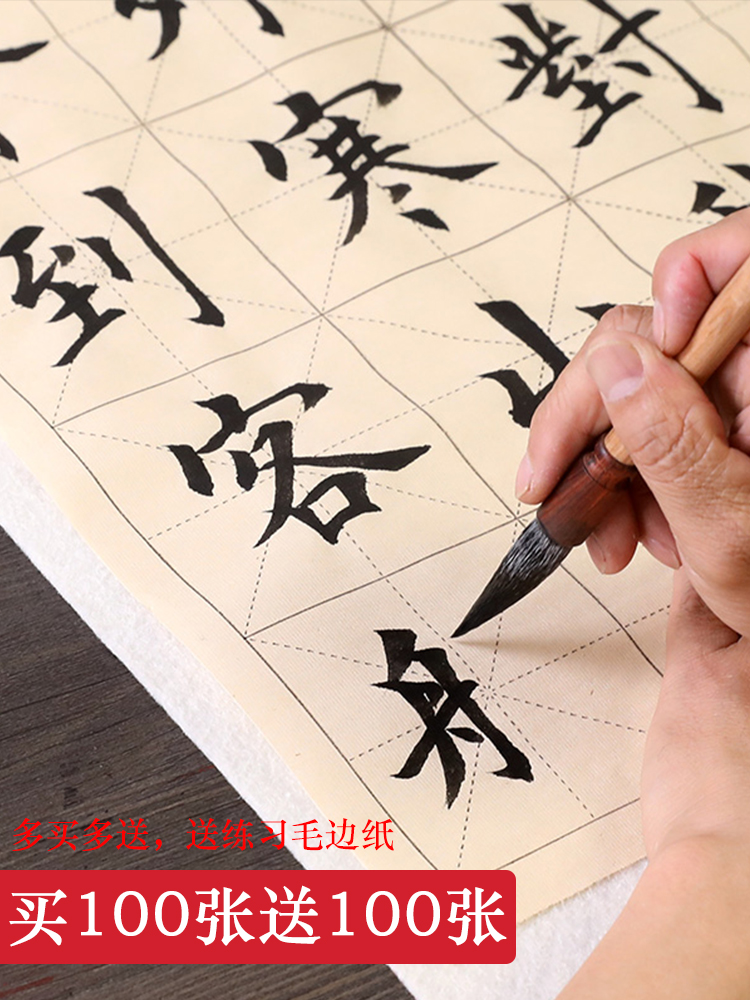 對
外寒山
到客舟
多买多送，送练习毛边纸
买100张送100张